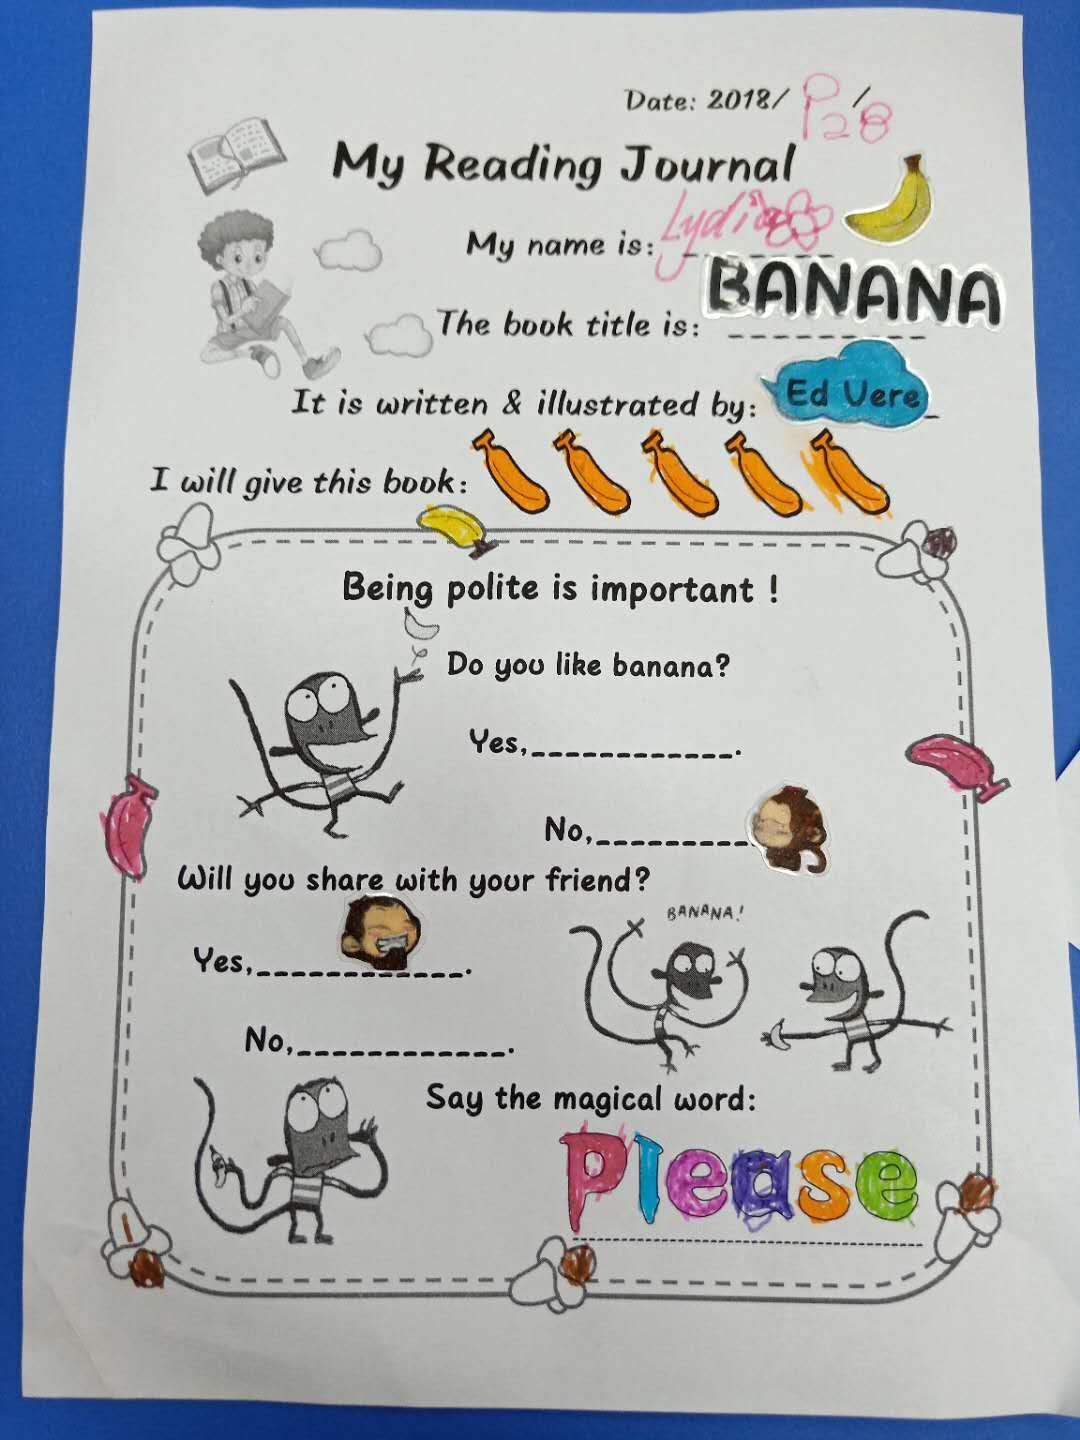 Date: 2018/ 9/28
My Reading Journal
My name is: Lydia
The book title is: BANANA
It is written & illustrated by: Ed Vere
I will give this book:
Being polite is important !
Do you like banana?
Yes,____________.
No,_________
Will you share with your friend?
BANANA!
Yes,____________.
No,____________.
Say the magical word:
Please